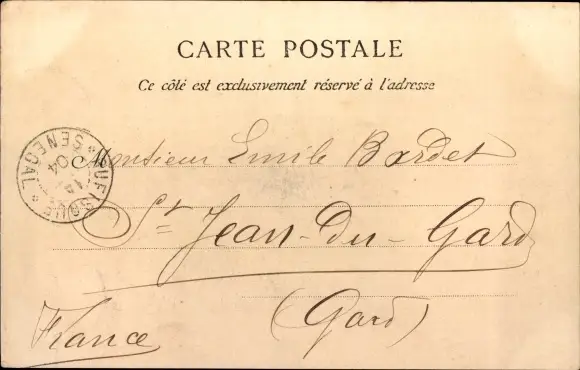 CARTE POSTALE
Ce côté est exclusivement réservé à l'adresse
RUFISQUE
SENEGAL
04
Monsieur Emile Bardet
St Jean-du-Gard
(Gard)
France